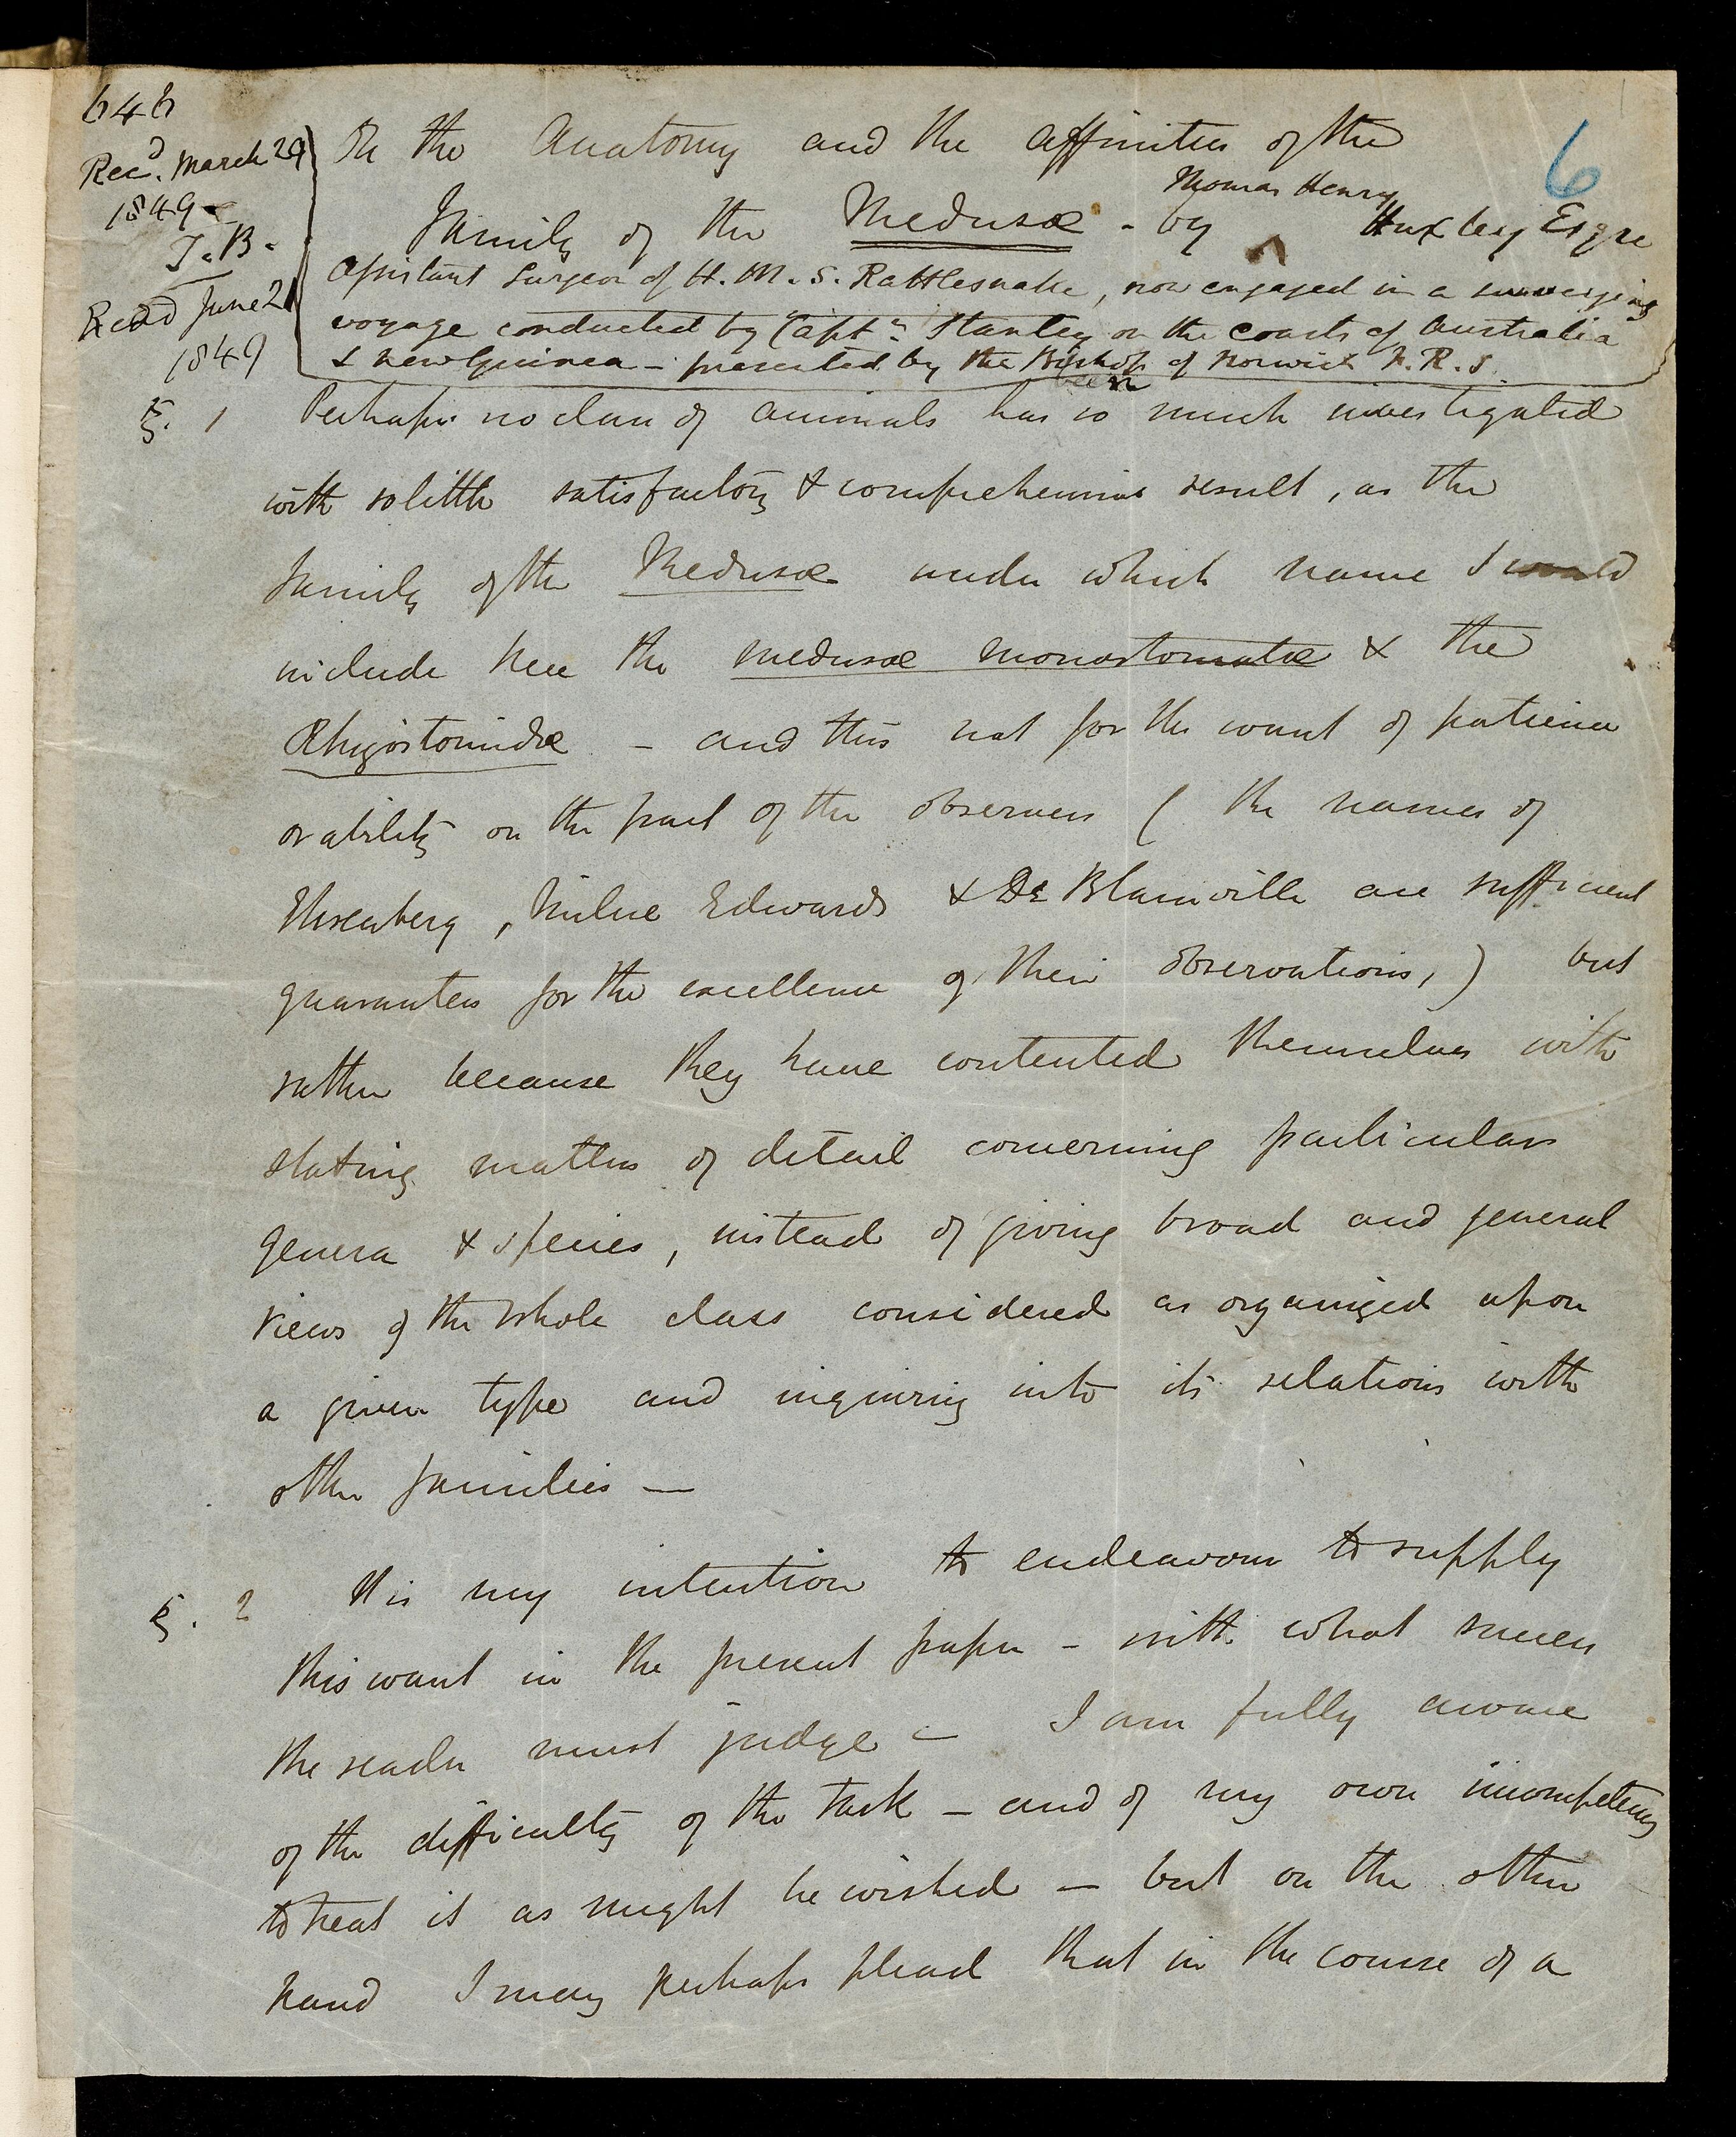 646
Recd. March 29
1849
T.B.
Read June 21
1849
6
On the Anatomy and the affinities of the
Family of the Medusæ - by Thomas Henry Huxley Esqre
Assistant Surgeon of H.M.S. Rattlesnake, now engaged in a surveying
voyage conducted by Captn. Stanley on the coasts of Australia
& New Guinea - presented by the Bishop of Norwich F.R.S.
§. 1 Perhaps no class of animals has been so much investigated
with so little satisfactory & comprehensive result, as the
family of the Medusæ under which name I would
include here the medusæ monostomatæ & the
Rhizostomidæ - and this not for the want of patience
or ability on the part of the observers ( the names of
Ehrenberg, Milne Edwards & De Blainville are sufficient
guarantees for the excellence of their observations,) but
rather because they have contented themselves with
stating matters of detail concerning particular
genera & species, instead of giving broad and general
views of the whole class considered as organized upon
a given type and inquiring into its relations with
other families —
§. 2 It is my intention to endeavour to supply
this want in the present paper - with what success
the reader must judge - I am fully aware
of the difficulty of the task - and of my own incompetency
to treat it as might be wished - but on the other
hand I may perhaps plead that in the course of a